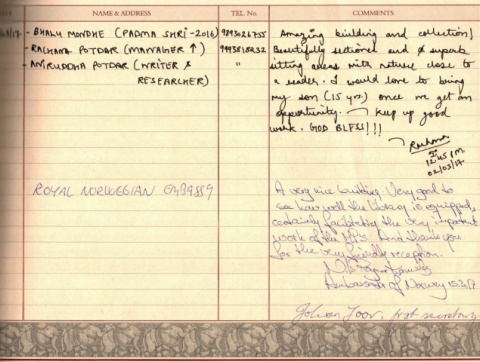 NAME & ADDRESS TEL. No. COMMENTS
- BHALU MONDHE (PADMA SHRI -2016) 9893026755
- RACHANA POTDAR (MANAGER
- ANIRUDDHA POTDAR (WRITER &
RESEARCHER)
Amazing building and collection!
Beautifully sectioned and superb
sitting areas with nature close to
a reader. I would love to bring
my son (15 yrs) once we get an
opportunity. Keep up good
work. GOD BLESS!!!
Rachana
12.45 P.M.
02/03/17
ROYAL NORWEGIAN EMBASSY
A very nice building. Very good to
see how well the library is equipped,
certainly facilitating the very important
work of the MPs. And thank you
for the very friendly reception.
Ambassador of Norway 15.3.17
first secretary